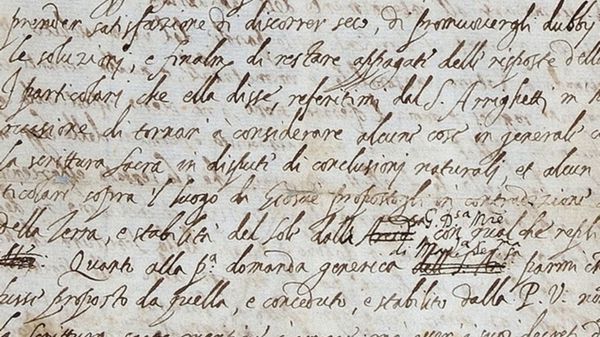 prender satisfazione di discorrer seco, di promuovergli dubby
le soluzioni, e finalm.e di restare appagati delle risposte della
I particolari, che ella disse, referitimi dal S. Arrighetti, m h
casione di tornar à considerare alcune cose in generale c
la scrittura sacra in disputi di conclusioni naturali, et alcun
ticolari sopra il luogo di Giosuè propostogli in contradizione
della Terra, e stabilità del Sole dalla G. D.sa M.re con qualche repli
Quanto alla p.a domanda generica di Mad.a Ser.ma parmi ch
fusse proposto da quella, e conceduto, e stabilito dalla P. V. no
la scrittura sacra mentire